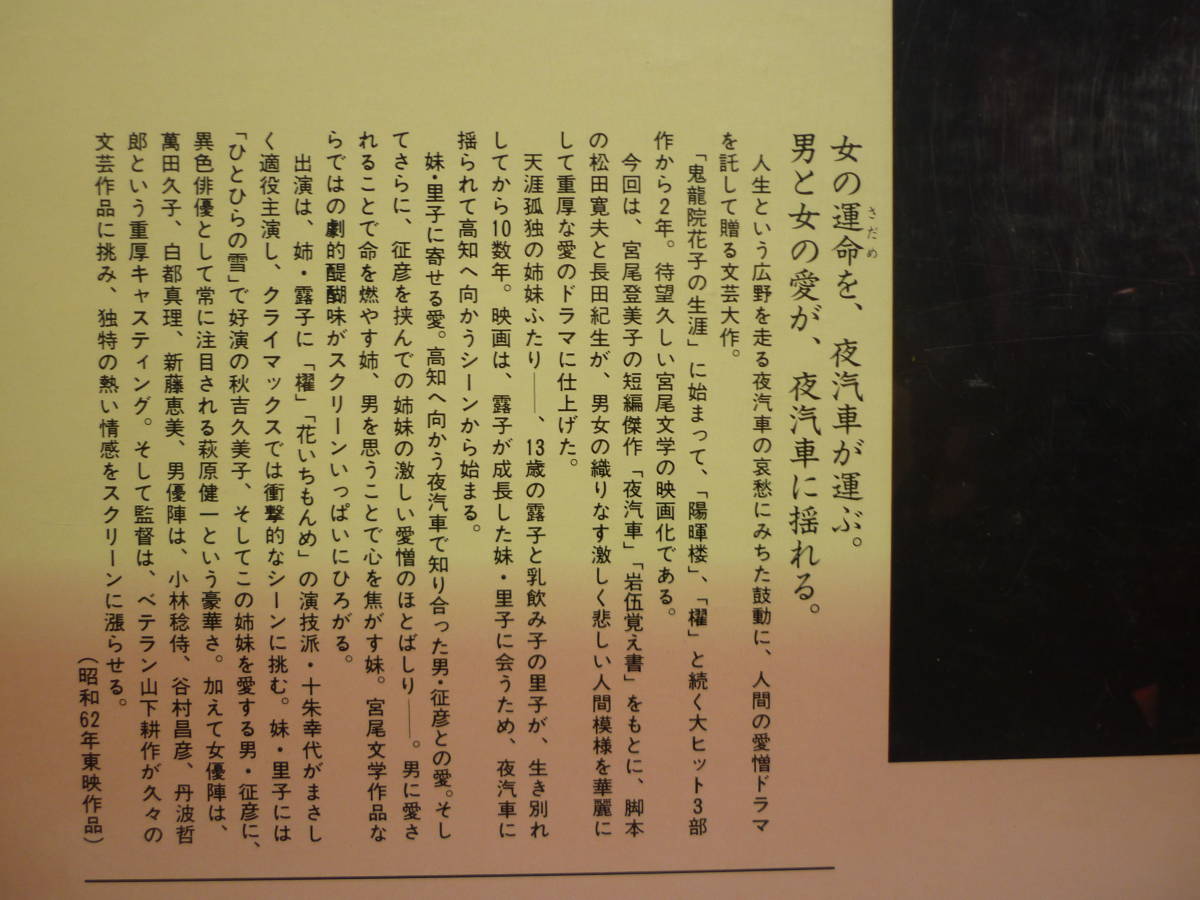 女の運命を、夜汽車が運ぶ。
さだめ
男と女の愛が、夜汽車に揺れる。
人生という広野を走る夜汽車の哀愁にみちた鼓動に、人間の愛憎ドラマ
を託して贈る文芸大作。
「鬼龍院花子の生涯」に始まって、「陽暉楼」、「櫂」と続く大ヒット3部
作から2年。待望久しい宮尾文学の映画化である。
今回は、宮尾登美子の短編傑作「夜汽車」「岩伍覚え書」をもとに、脚本
の松田寛夫と長田紀生が、男女の織りなす激しく悲しい人間模様を華麗に
して重厚な愛のドラマに仕上げた。
天涯孤独の姉妹ふたり——、13歳の露子と乳飲み子の里子が、生き別れ
してから10数年。映画は、露子が成長した妹・里子に会うため、夜汽車に
揺られて高知へ向かうシーンから始まる。
妹・里子に寄せる愛。高知へ向かう夜汽車で知り合った男・征彦との愛。そし
てさらに、征彦を挟んでの姉妹の激しい愛憎のほとばしり——。男に愛さ
れることで命を燃やす姉、男を思うことで心を焦がす妹。宮尾文学作品な
らではの劇的醍醐味がスクリーンいっぱいにひろがる。
出演は、姉・露子に「櫂」「花いちもんめ」の演技派・十朱幸代がまさし
く適役主演し、クライマックスでは衝撃的なシーンに挑む。妹・里子には
「ひとひらの雪」で好演の秋吉久美子、そしてこの姉妹を愛する男・征彦に、
異色俳優として常に注目される萩原健一という豪華さ。加えて女優陣は、
萬田久子、白都真理、新藤恵美、男優陣は、小林稔侍、谷村昌彦、丹波哲
郎という重厚キャスティング。そして監督は、ベテラン山下耕作が久々の
文芸作品に挑み、独特の熱い情感をスクリーンに漲らせる。
（昭和62年東映作品）